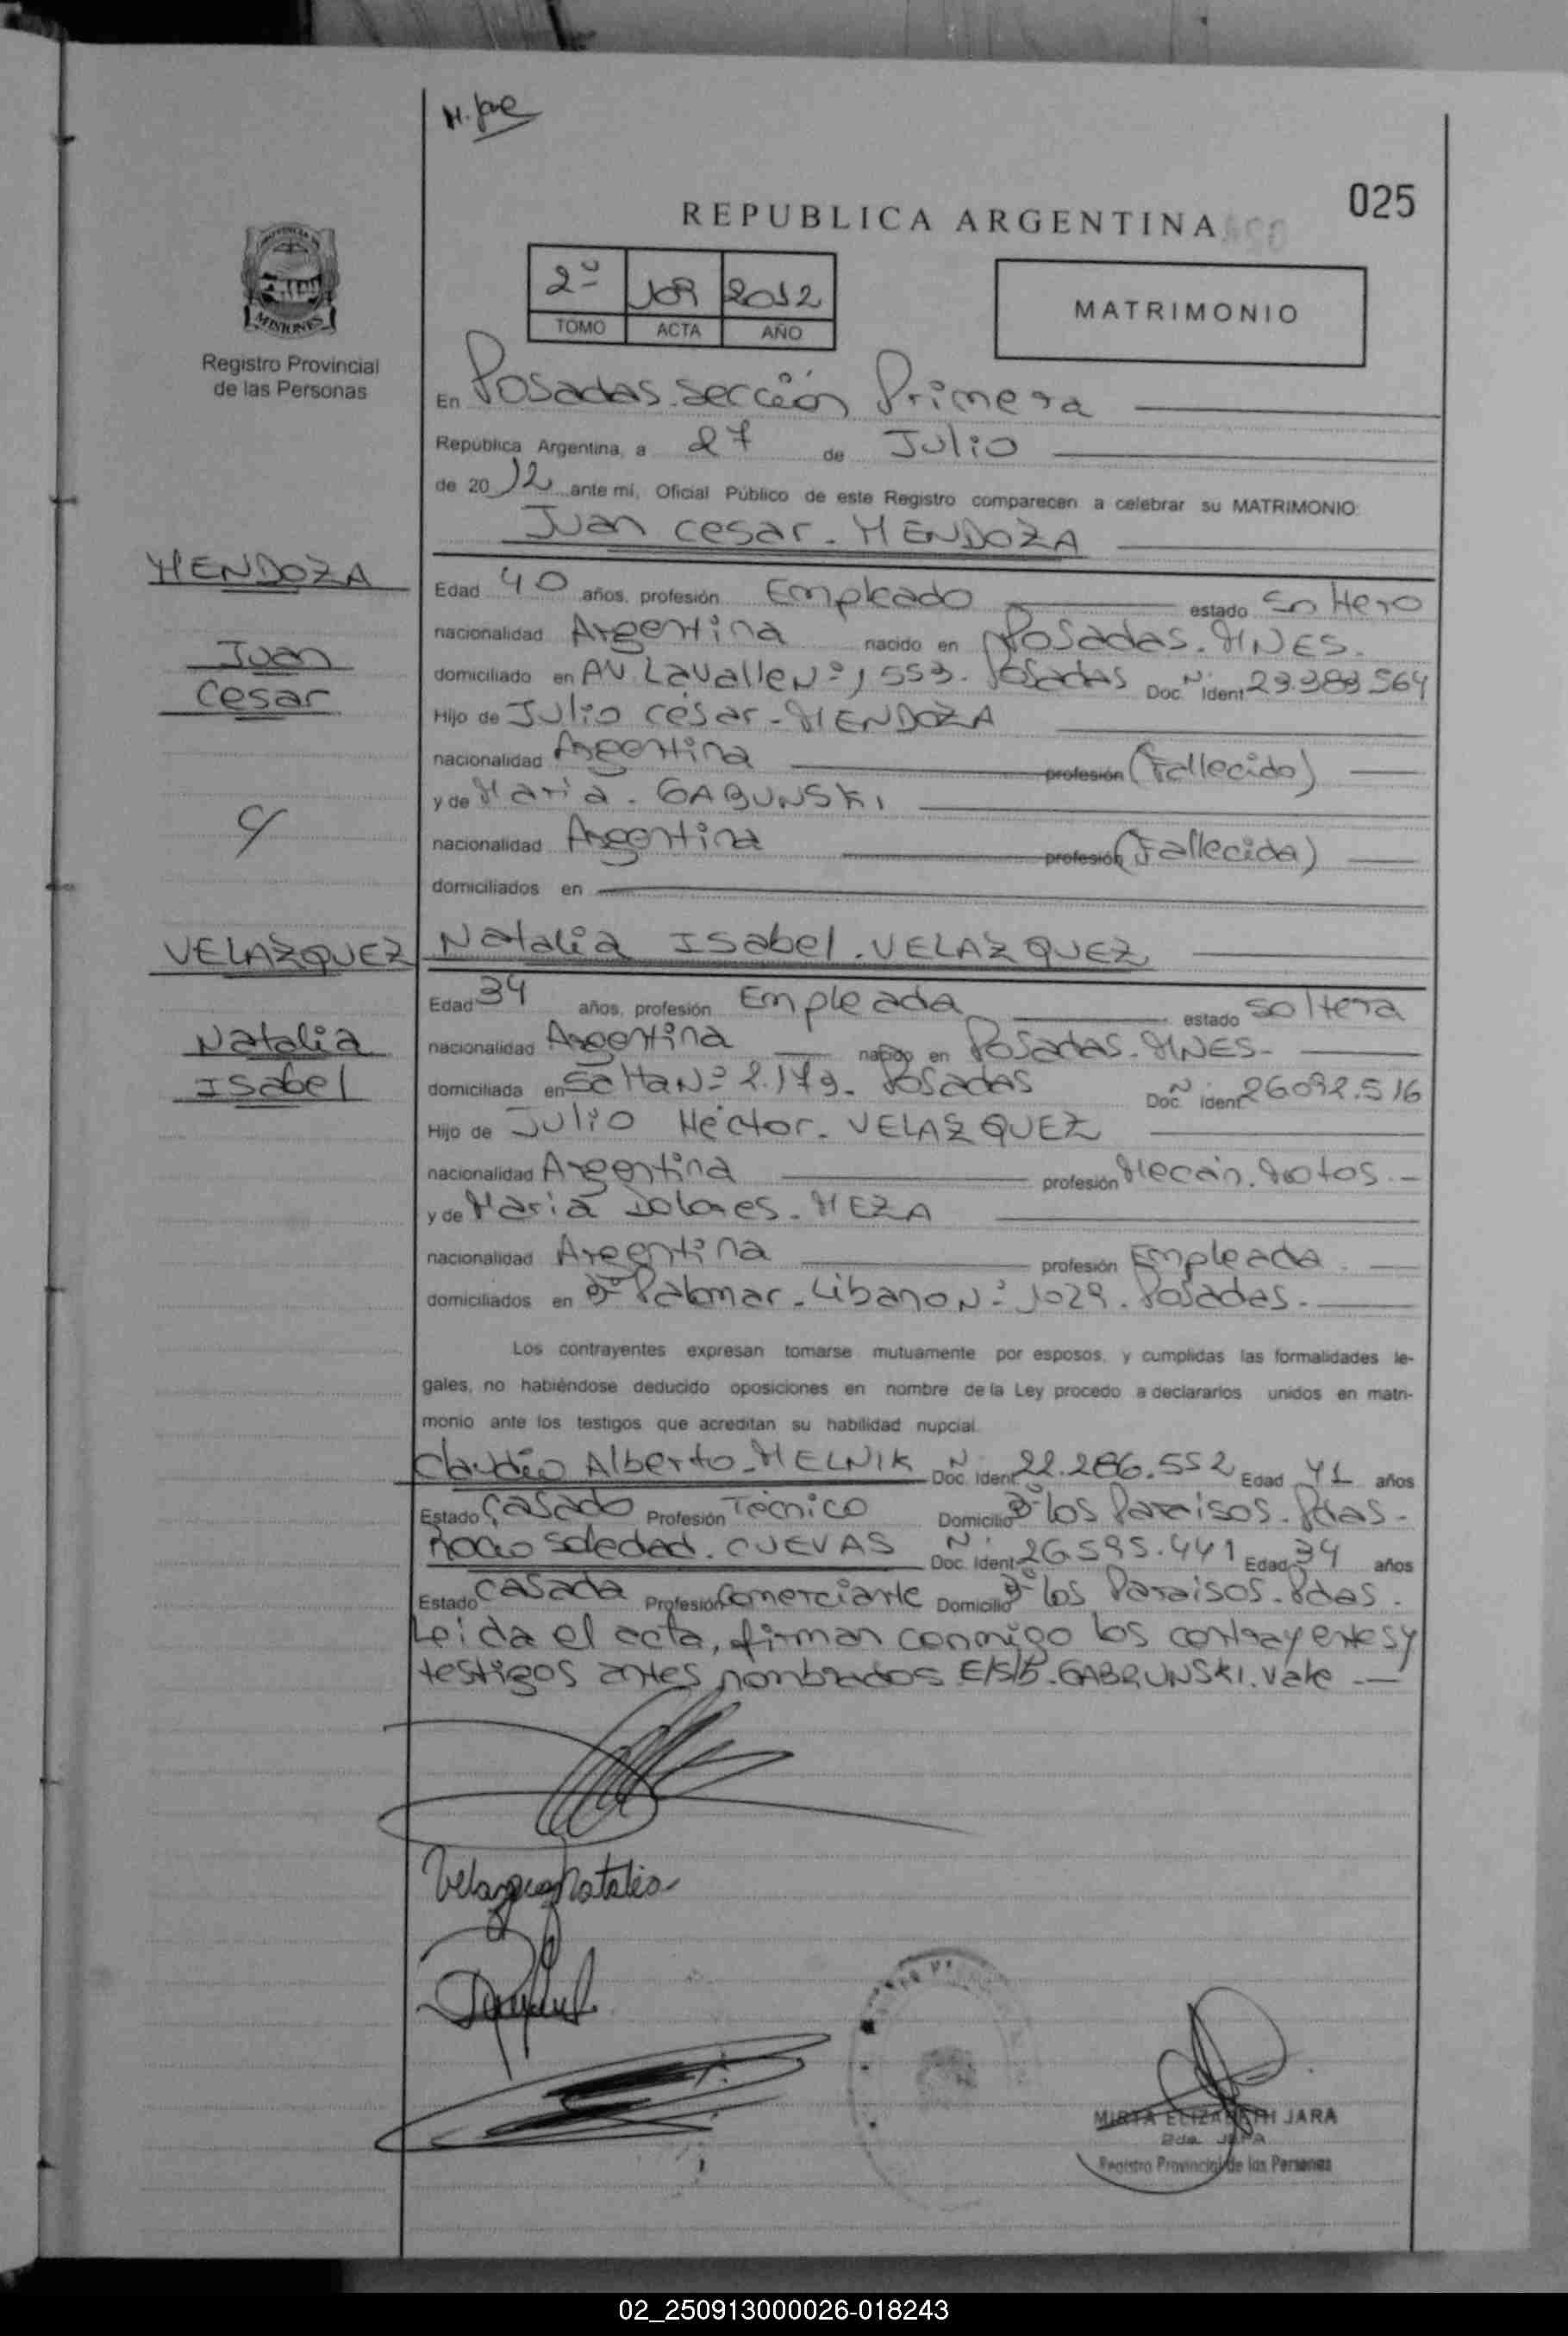 025
REPUBLICA ARGENTINA
2º 109 2012
TOMO ACTA AÑO
MATRIMONIO
Registro Provincial
de las Personas
En Posadas. sección Primera
República Argentina, a 27 de Julio
de 2012 ante mí, Oficial Público de este Registro comparecen a celebrar su MATRIMONIO:
Juan cesar - MENDOZA
MENDOZA
Juan
cesar
c/
VELAZQUEZ
Natalia
Isabel
Edad 40 años, profesión Empleado estado soltero
nacionalidad Argentina nacido en Posadas. MNES.
domiciliado en AV. Lavalle Nº 1553. Posadas Doc. Nº Ident 23.383.564
Hijo de Julio césar - MENDOZA
nacionalidad Argentina profesión (Fallecido)
y de María - GABUNSKI
nacionalidad Argentina profesión (Fallecida)
domiciliados en
Natalia Isabel - VELAZQUEZ
Edad 34 años, profesión Empleada estado soltera
nacionalidad Argentina nacido en Posadas. MNES-
domiciliada en Salta Nº 2.179. Posadas Doc. Nº Ident 26.092.516
Hijo de Julio Héctor - VELAZQUEZ
nacionalidad Argentina profesión Mecán. Motos. -
y de María Dolores - MEZA
nacionalidad Argentina profesión Empleada
domiciliados en Bº Palomar - Libano Nº 1029. Posadas.
Los contrayentes expresan tomarse mutuamente por esposos, y cumplidas las formalidades le-
gales, no habiéndose deducido oposiciones en nombre de la Ley procedo a declararlos unidos en matri-
monio ante los testigos que acreditan su habilidad nupcial.
Claudio Alberto - MELNIK Doc. Nº Ident 22.286.552 Edad 41 años
Estado Casado Profesión Técnico Domicilio Bº los Paraisos. Pdas.
Rocio Soledad. CUEVAS Doc. Nº Ident 26.595.441 Edad 34 años
Estado Casada Profesión Comerciante Domicilio Bº los Paraisos. Pdas.
Leida el acta, firman conmigo los contrayentes y
testigos antes nombrados E/S/B. GABRUNSKI. Vale. —
Velazquez Natalia
MIRTA ELIZABETH JARA
2da. JEFA
Registro Provincial de las Personas
02_250913000026-018243